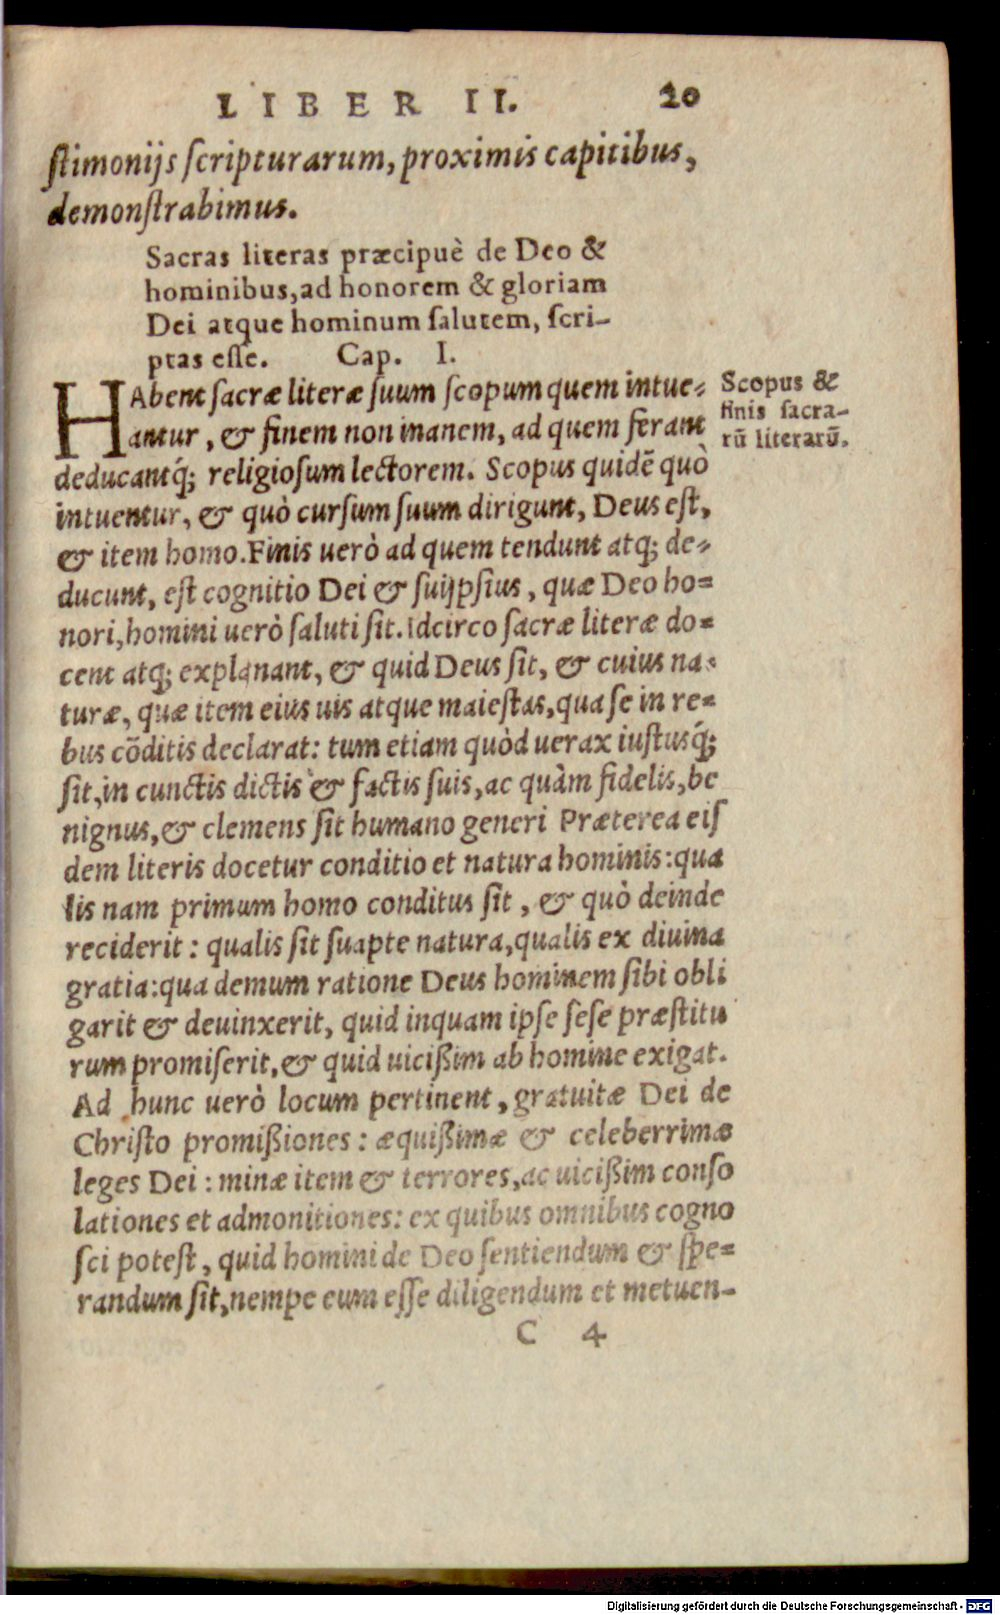 LIBER II. 20
stimonijs scripturarum, proximis capitibus,
demonstrabimus.
Sacras literas præcipuè de Deo &
hominibus, ad honorem & gloriam
Dei atque hominum salutem, scri-
ptas esse. Cap. I.
HAbent sacræ literæ suum scopum quem intue-
antur, & finem non inanem, ad quem ferant
deducantq́; religiosum lectorem. Scopus quidē quò
intuentur, & quò cursum suum dirigunt, Deus est,
& item homo. Finis uerò ad quem tendunt atq; de-
ducunt, est cognitio Dei & suijpsius, quæ Deo ho-
nori, homini uerò saluti sit. Idcirco sacræ literæ do-
cent atq; explanant, & quid Deus sit, & cuius na-
turæ, quæ item eius uis atque maiestas, qua se in re-
bus cōditis declarat: tum etiam quòd uerax iustusq́;
sit, in cunctis dictis & factis suis, ac quàm fidelis, be
nignus, & clemens sit humano generi Præterea eis
dem literis docetur conditio et natura hominis: qua
lis nam primum homo conditus sit, & quò deinde
reciderit: qualis sit suapte natura, qualis ex diuina
gratia: qua demum ratione Deus hominem sibi obli
garit & deuinxerit, quid inquam ipse sese præstitu
rum promiserit, & quid uicißim ab homine exigat.
Ad hunc uerò locum pertinent, gratuitæ Dei de
Christo promißiones: æquißimæ & celeberrimæ
leges Dei: minæ item & terrores, ac uicißim conso
lationes et admonitiones: ex quibus omnibus cogno
sci potest, quid homini de Deo sentiendum & spe-
randum sit, nempe eum esse diligendum et metuen-
C 4
Scopus &
finis sacra-
rū literarū.
Digitalisierung gefördert durch die Deutsche Forschungsgemeinschaft - DFG